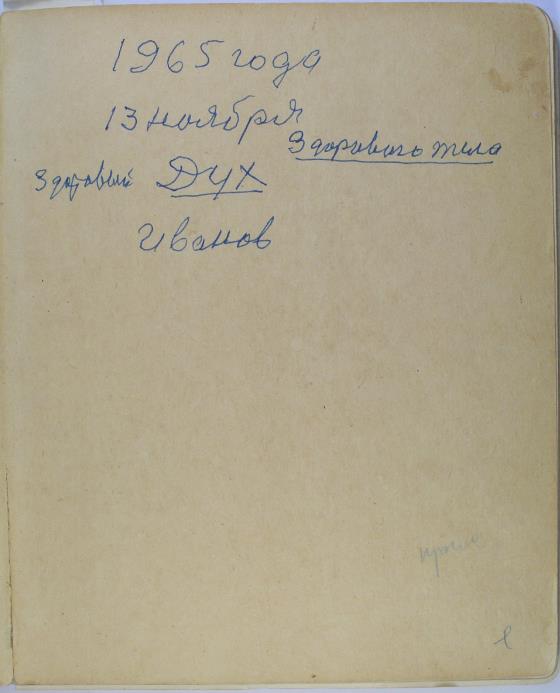 1965 года
13 ноября
Здорового тела
Здоровый Дух
Иванов